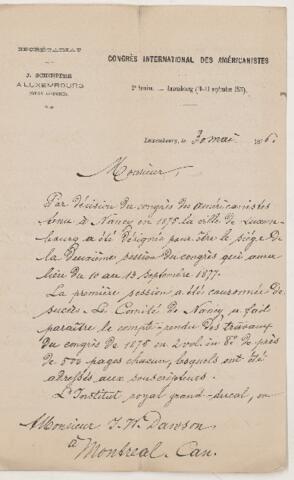 SECRÉTARIAT
J. SCHOETTER
A LUXEMBOURG
CONGRÈS INTERNATIONAL DES AMÉRICANISTES
2e Session. — Luxembourg (10-13 septembre 1877).
Luxembourg, le 30 mai 1876.
Monsieur,
Par décision du congrès des américanistes
tenu à Nancy en 1875 la ville de Luxem-
bourg a été désignée pour être le siège de
la deuxième session du congrès qui aura
lieu du 10 au 13 septembre 1877.
La première session a été couronnée de
succès. Le Comité de Nancy a fait
paraître le compte-rendu des travaux
du congrès de 1875 en 2 vol. in 8° de près
de 500 pages chacun, lesquels ont été
adressés aux souscripteurs.
L'Institut royal grand-ducal, en
Monsieur J. W. Dawson
à Montreal. Can.